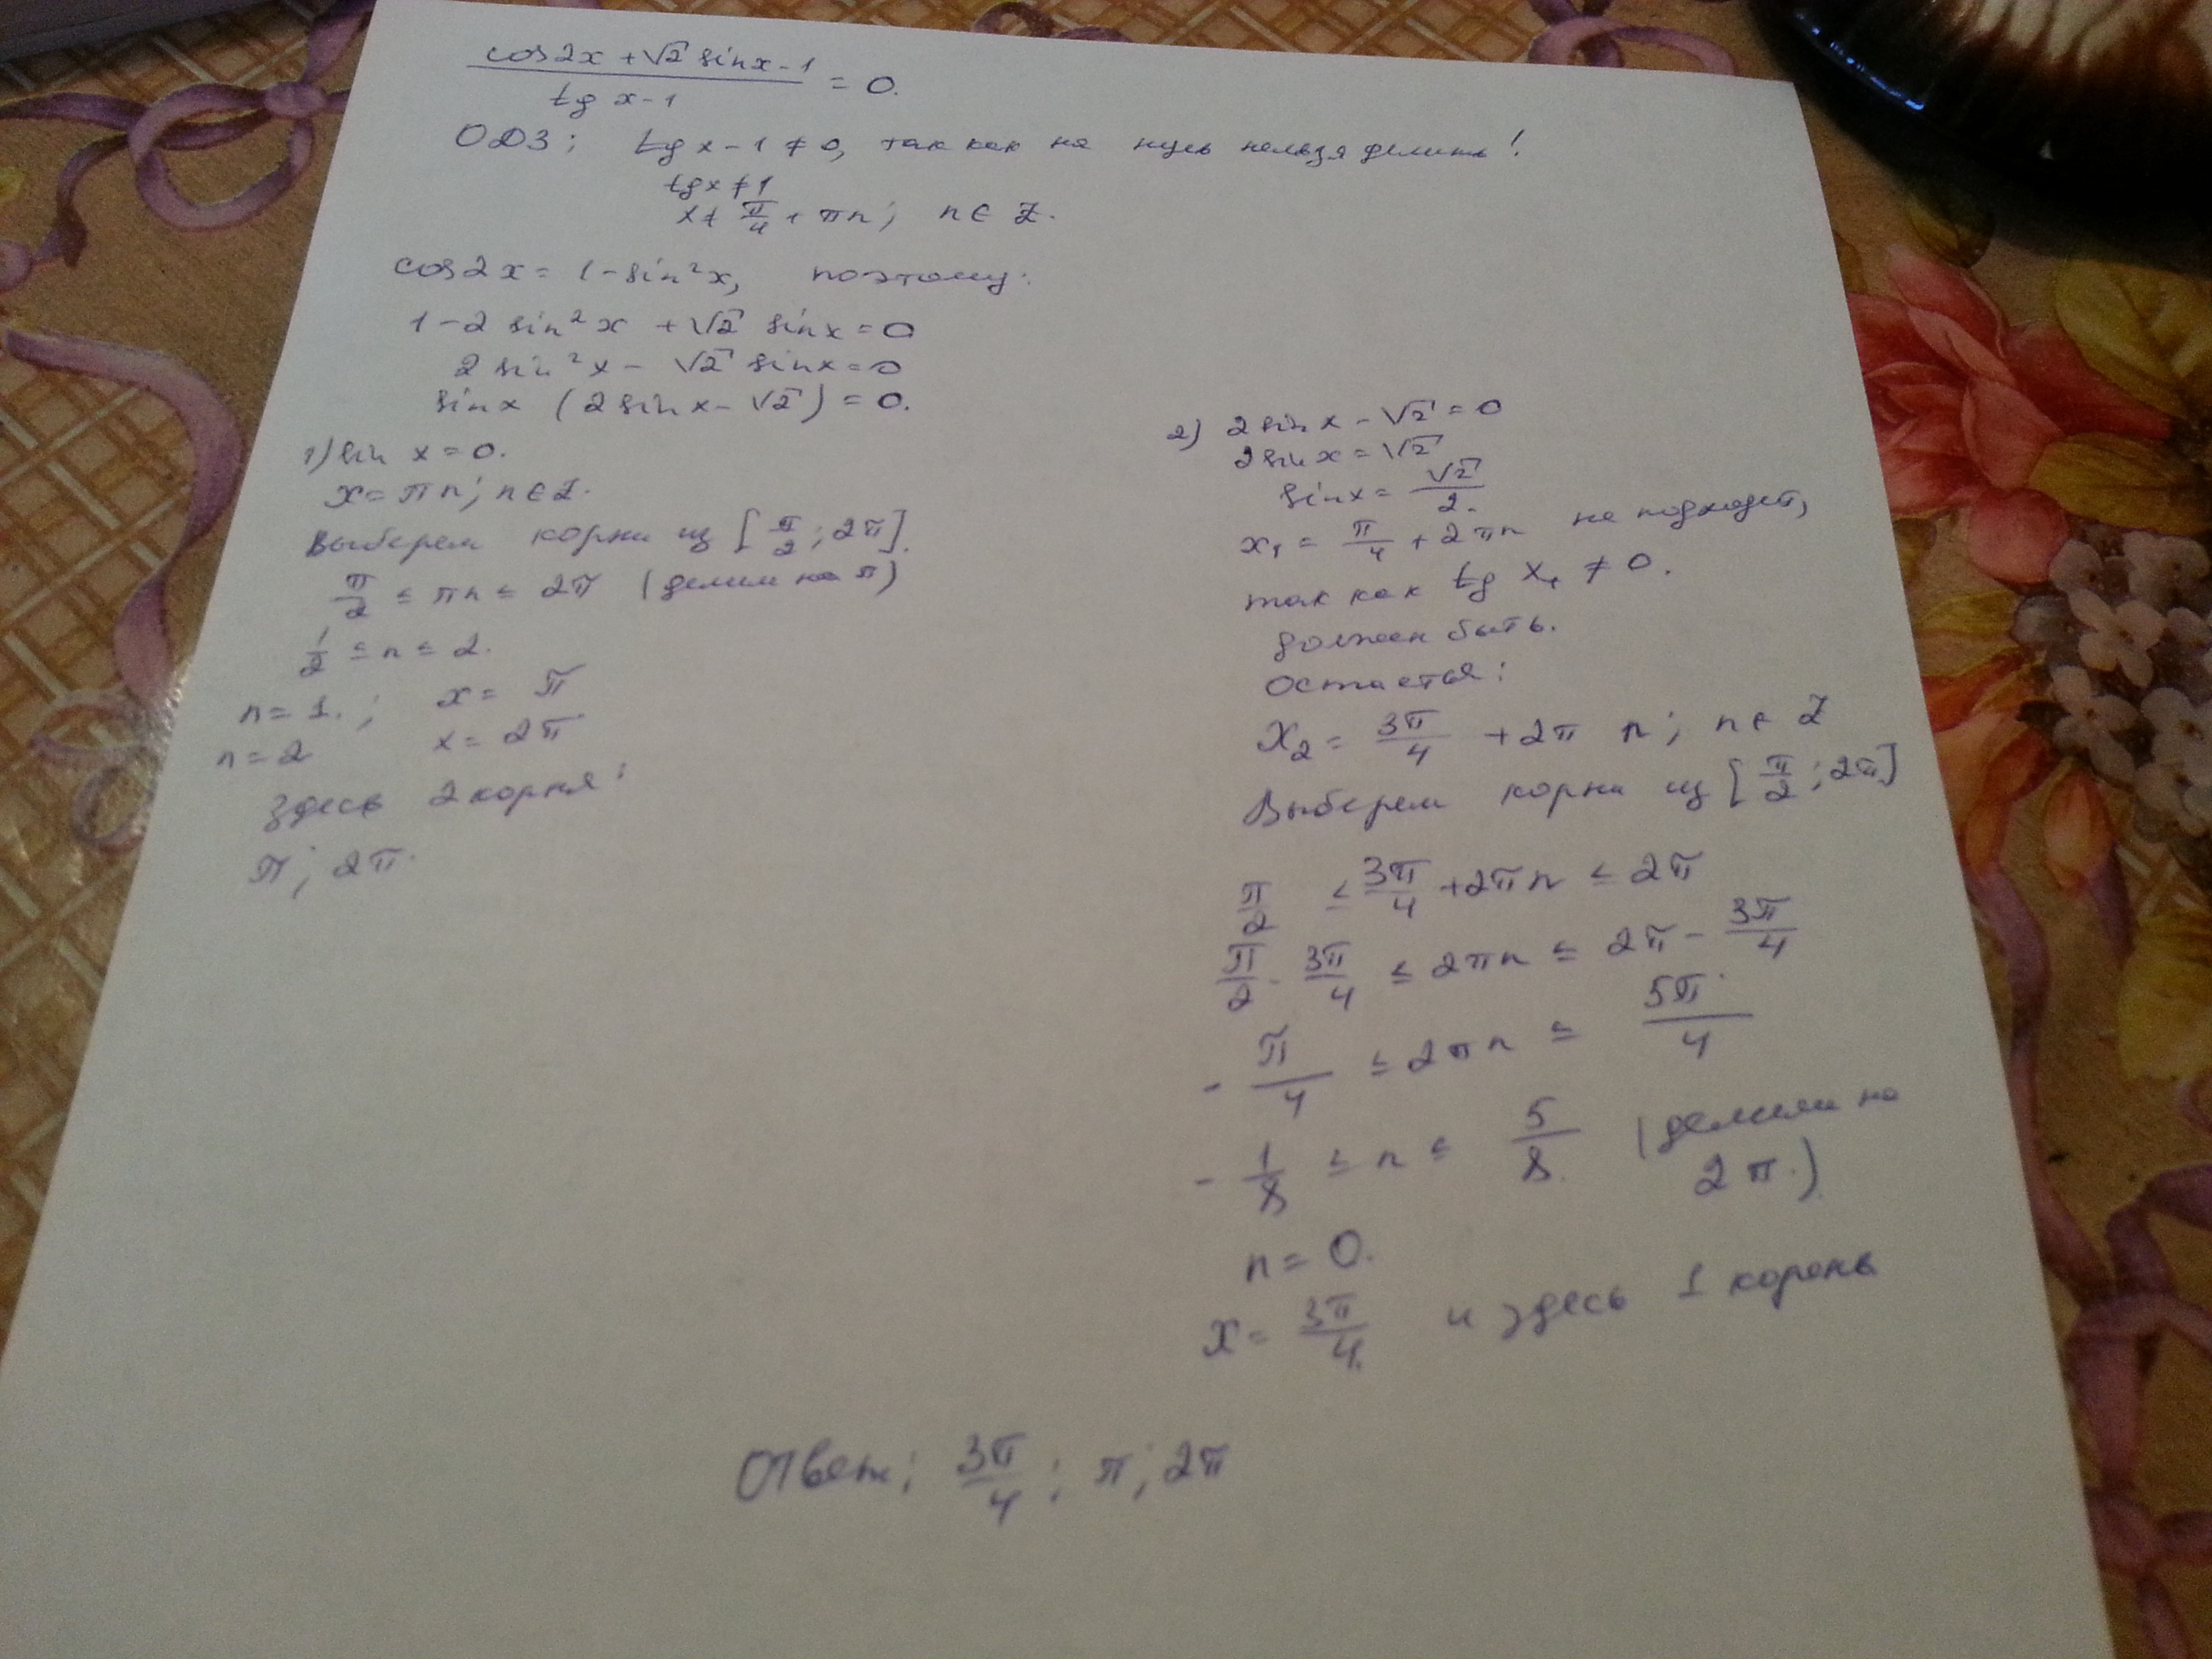 cos2x + √2 sinx - 1 / tg x - 1 = 0.
ОДЗ; tg x - 1 ≠ 0, так как на нуль нельзя делить!
tg x ≠ 1
x ≠ π/4 + πn; n ∈ Z.
cos2x = 1 - sin²x, поэтому:
1 - 2 sin²x + √2 sinx = 0
2 sin²x - √2 sinx = 0
sinx (2 sinx - √2) = 0.
1) sin x = 0.
x = πn; n ∈ Z.
Выберем корни из [π/2; 2π].
π/2 ≤ πn ≤ 2π (делим на π)
1/2 ≤ n ≤ 2.
n = 1.; x = π
n = 2 x = 2π
здесь 2 корня:
π; 2π.
2) 2 sin x - √2 = 0
2 sin x = √2
sinx = √2/2.
x₁ = π/4 + 2πn не подходит,
так как tg x₁ ≠ 0.
должен быть.
Остается:
x₂ = 3π/4 + 2π n; n ∈ Z
Выберем корни из [π/2; 2π]
π/2 ≤ 3π/4 + 2πn ≤ 2π
π/2 - 3π/4 ≤ 2πn ≤ 2π - 3π/4
- π/4 ≤ 2πn ≤ 5π/4
- 1/8 ≤ n ≤ 5/8. (делили на
2π.)
n = 0.
x = 3π/4. и здесь 1 корень
Ответ; 3π/4; π; 2π